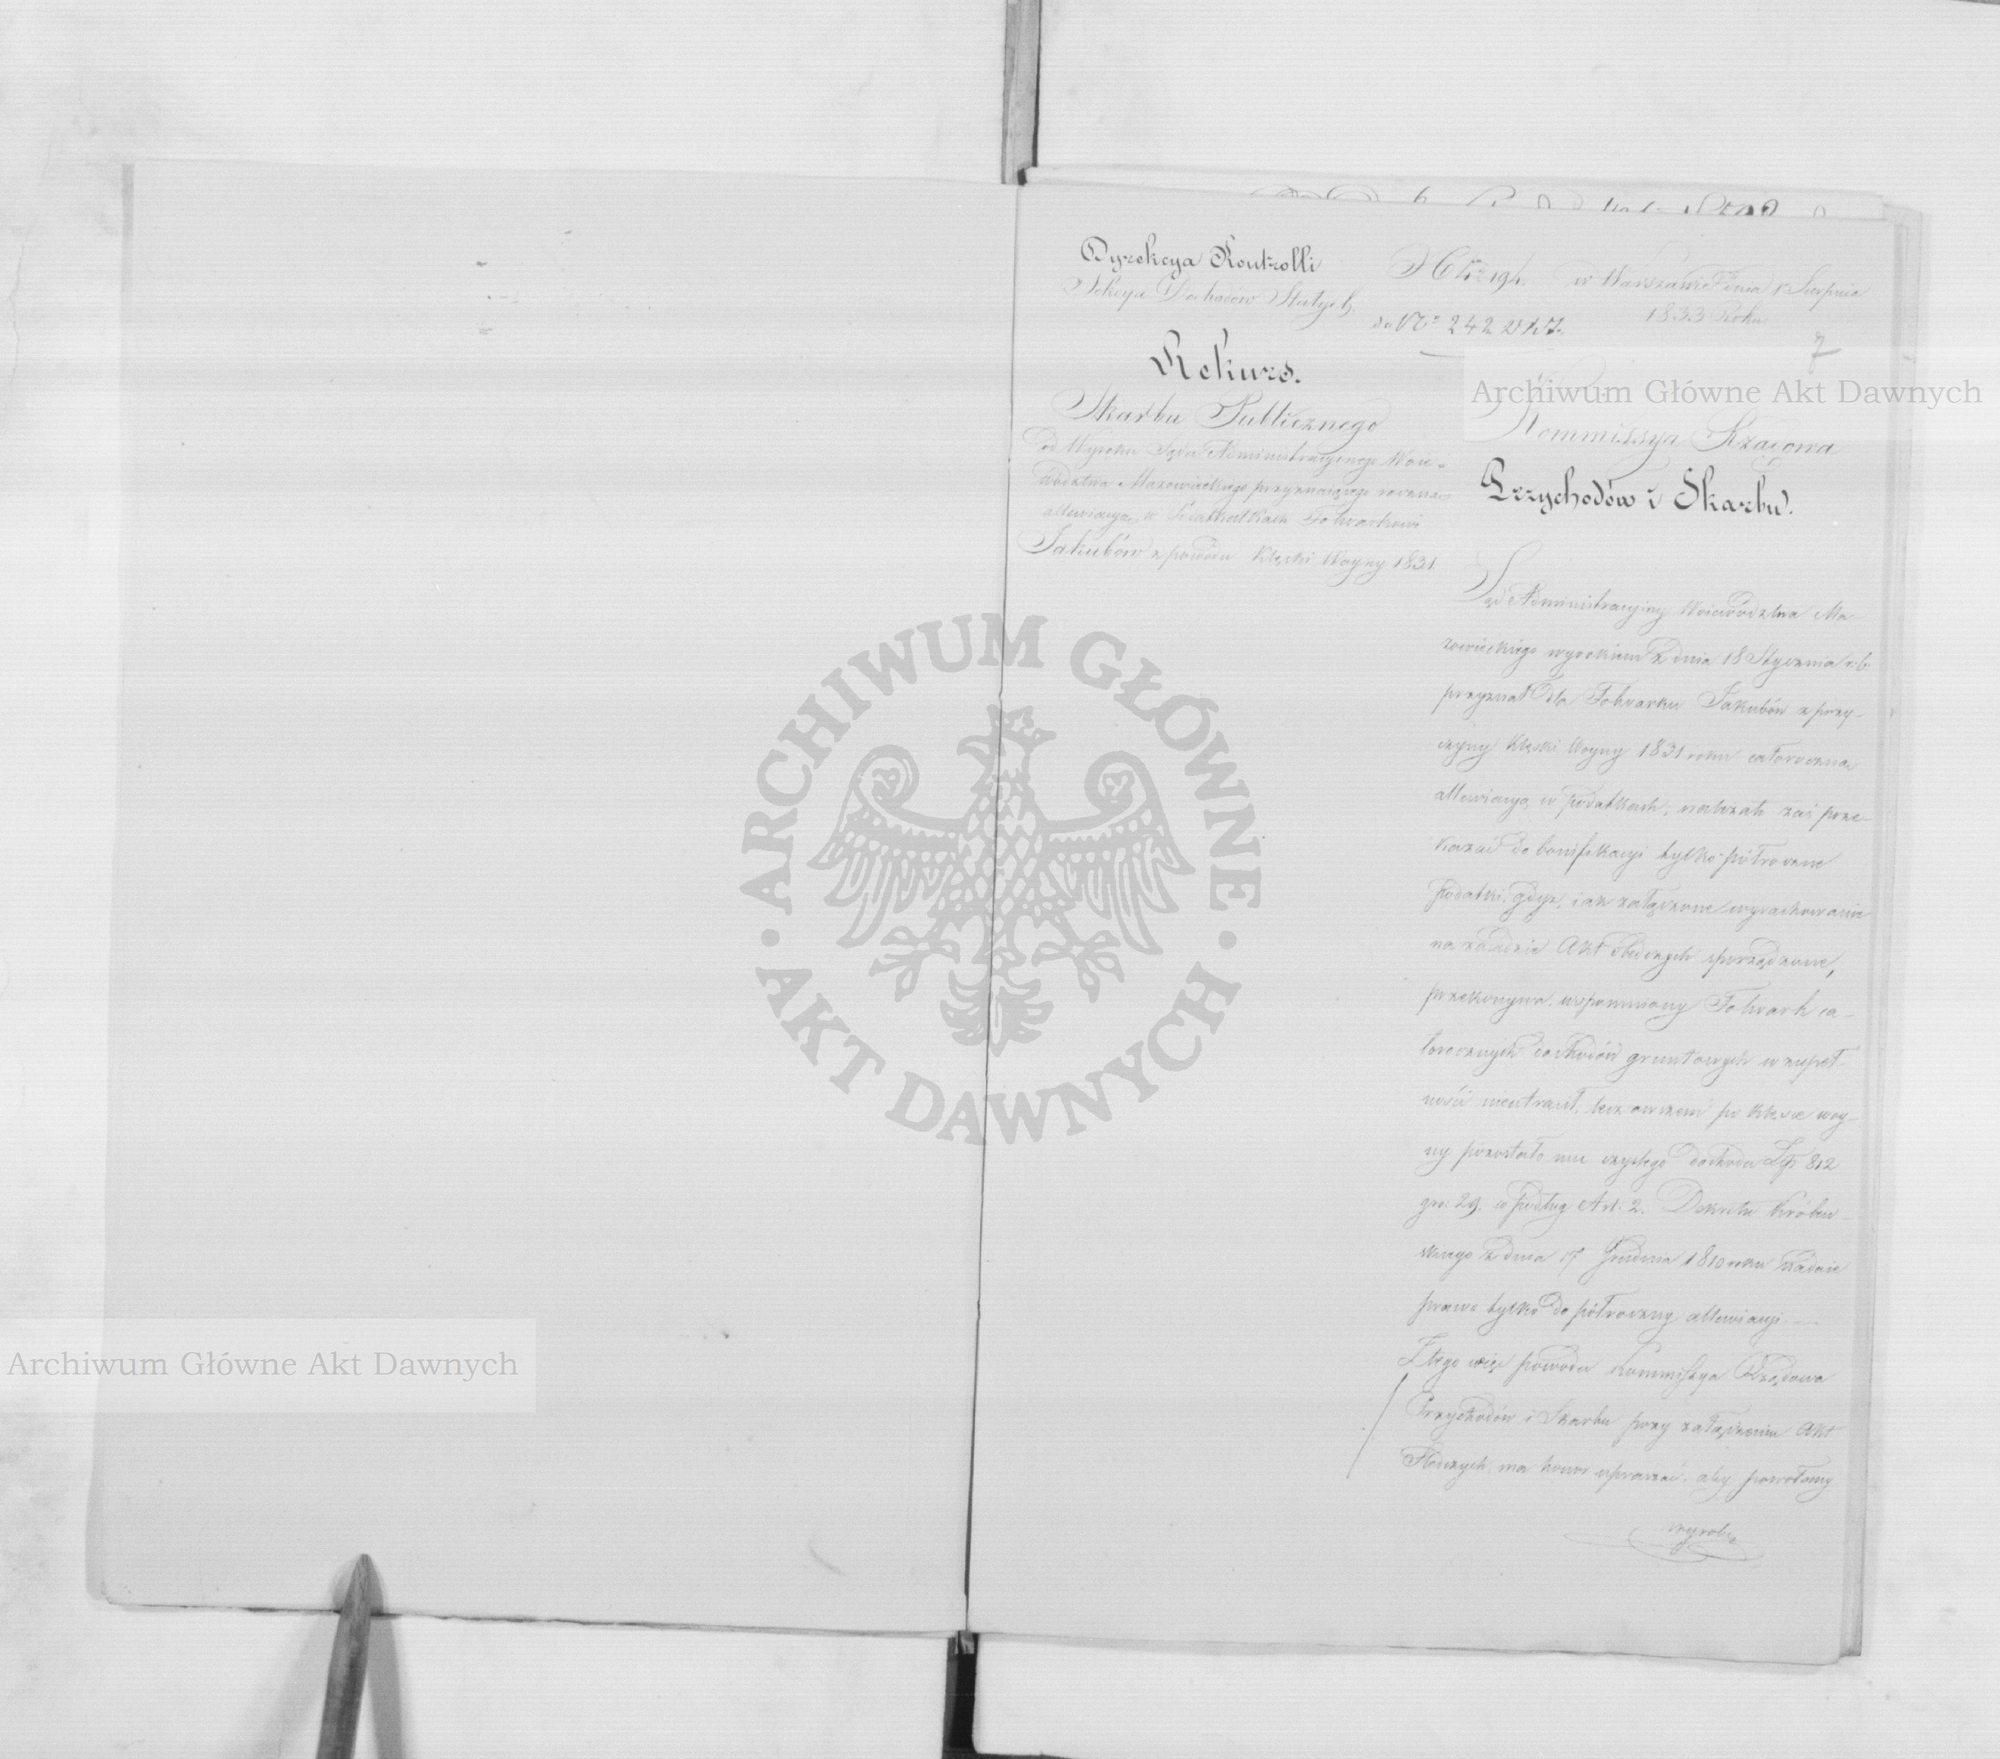 Dyrekcya Kontrolli
Sekcya Dochodów Stałych
w Warszawie dnia Sierpnia
1833 Roku
do Nro 242
7
Rekurs.
Skarbu Publicznego
od Wyroku Sądu Administracyjnego Woie-
wództwa Mazowieckiego przyznaiącego roczną
allewiacyą w Podatkach Folwarkowi
Jakubów z powodu Klęski Woyny 1831
Kommissya Rządowa
Przychodów i Skarbu.
Sąd Administracyiny Woiewództwa Ma-
zowieckiego wyrokiem z dnia 18 Stycznia r. b.
przyznał dla Folwarku Jakubów z przy-
czyny Klęski Woyny 1831 roku całoroczną
allewiacyą w podatkach, należało zaś prze-
kazać do bonifikacyi tylko półroczne
podatki, gdyż, iak załączone wyrachowanie
na zasadzie Akt śledczych sporządzone,
przekonywa, wspomniony Folwark ca-
łorocznych dochodów gruntowych w zupeł-
ności nieutracił, lecz owszem po klęsce woy-
ny pozostało mu czystego dochodu Złp 812
gro. 29. a podług Art. 2. Dekretu Królew-
skiego z dnia 17 Grudnia 1810 roku
prawo tylko do półroczny allewiacyi. —
Z tego więc powodu Kommissya Rządowa
Przychodów i Skarbu przy załączeniu Akt
Śledczych, ma honor upraszać, aby powołany
wyrok
Archiwum Główne Akt Dawnych
ARCHIWUM GŁÓWNE
• AKT DAWNYCH •
Archiwum Główne Akt Dawnych